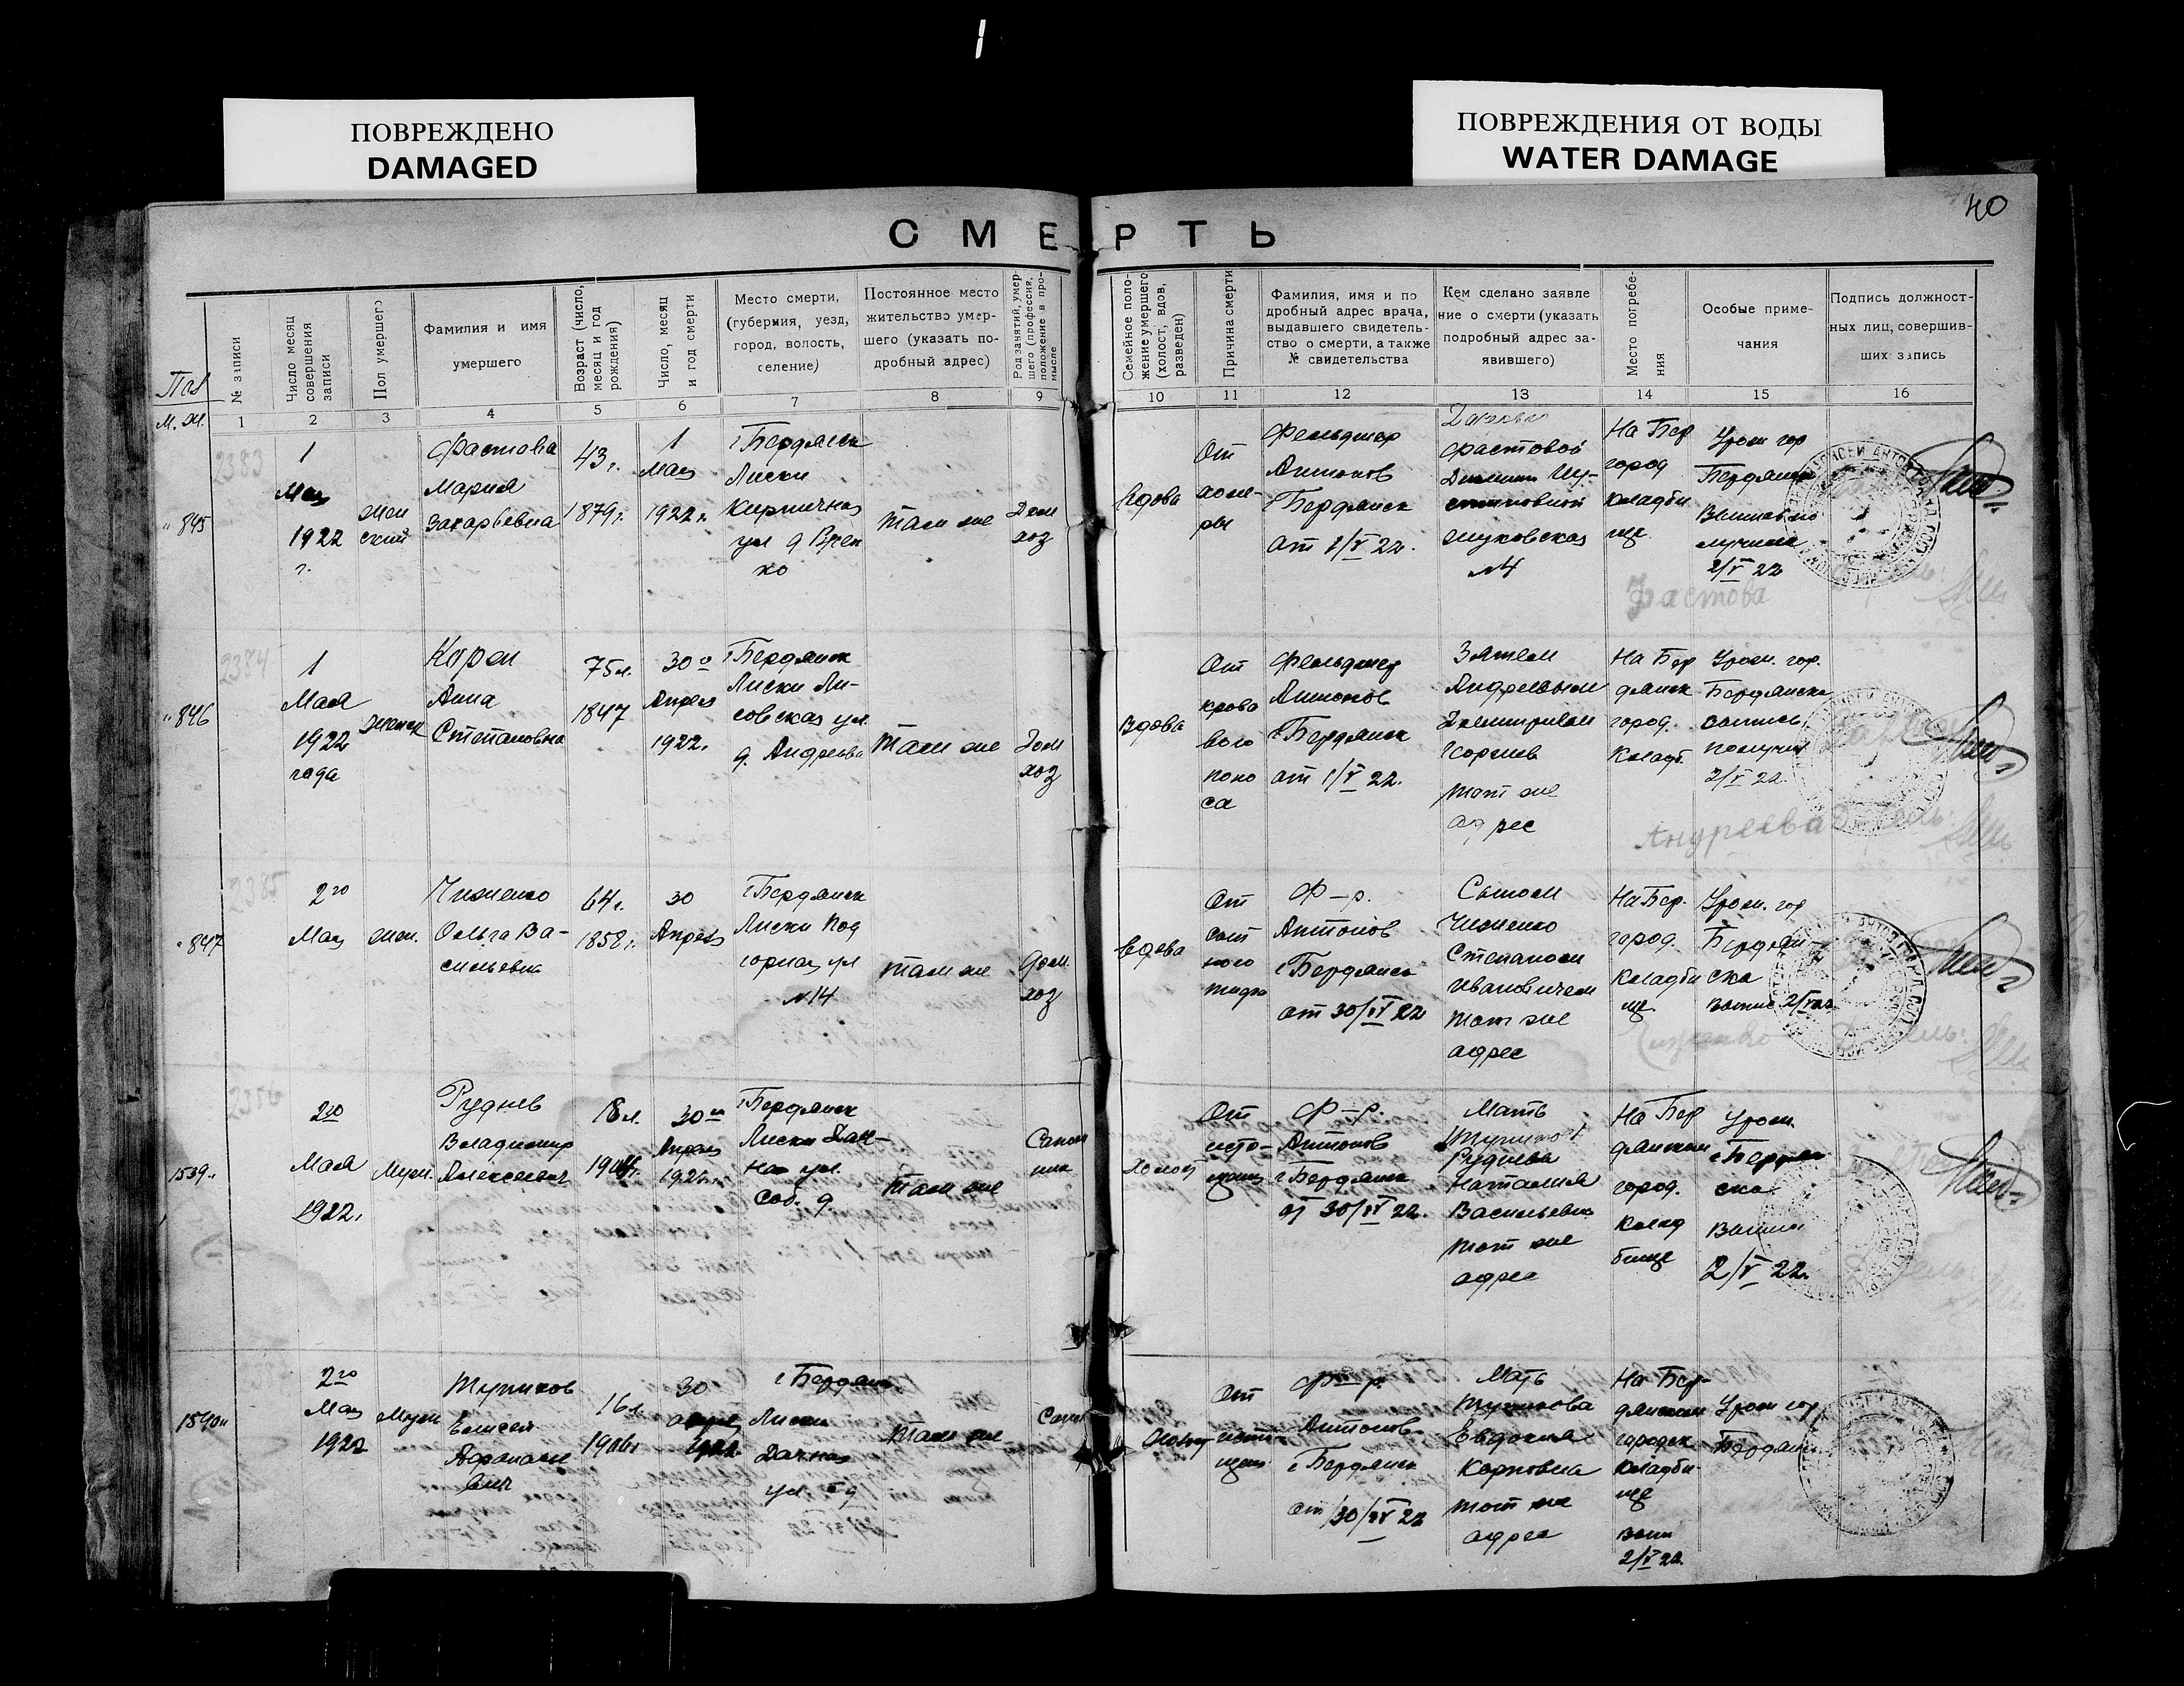 ПОВРЕЖДЕНО
DAMAGED
ПОВРЕЖДЕНИЯ ОТ ВОДЫ
WATER DAMAGE
40
СМЕРТЬ
№ записи
Число месяц
совершения
записи
Пол умершего
Фамилия и имя
умершего
Возраст (число,
месяц и год
рождения)
Число, месяц
и год смерти
Место смерти,
(губерния, уезд,
город, волость,
селение)
Постоянное место
жительство умер-
шего (указать по-
дробный адрес)
Род занятий, умер-
шего (профессия,
положение в про-
мысле
Семейное поло-
жение умершего
(холост, вдов,
разведен)
Причина смерти
Фамилия, имя и по
дробный адрес врача,
выдавшего свидетель-
ство о смерти, а также
№ свидетельства
Кем сделано заявле
ние о смерти (указать
подробный адрес за-
явившего)
Место погребе-
ния
Особые приме-
чания
Подпись должност-
ных лиц, совершив-
ших запись
М. Ж.
1 2 3 4 5 6 7 8 9 10 11 12 13 14 15 16
2383
845
1
Мая
1922
г.
жен
ский
Фастова
Мария
Захарьевна
43 г.
1879 г.
1
Мая
1922 г.
г Бердянск
Лиски
Кирпичная
ул
там же
Дом
хоз
Вдова
От
холе-
ры
Фельдшер
Антонов
г Бердянск
от 1/V 22.
Фастовой
№ 4
На Бер
город
кладби
ще
Урож гор
Бердянска
2/V 22
Фастова
2384
846
1
Мая
1922
года
женск
Корж
Анна
Степановна
75 л.
1847
30 го
Апреля
1922 г.
г Бердянск
Лиски Ли-
совская ул.
д. Андреева
там же
Дом
хоз
Вдова
От
крова
вого
поно
са
Фельдшер
Антонов
г Бердянск
от 1/V 22.
Зятем
Андреевым
Дмитрием
тот же
адрес
На Бер
дянск
город.
Кладб.
Урож. гор.
Бердянска
2/V 22.
Андреева
2385
847
2 го
Мая
жен.
Чиженко
Ольга Ва-
сильевна
64 г.
1858 г.
30
Апреля
г Бердянск
Лиски Под
горная ул
№ 14
там же
дом.
хоз
Вдова
От
сып
ного
тифа
Ф-р.
Антонов
г Бердянск
от 30/IV 22
Сыном
Чиженко
Степаном
Ивановичем
тот же
адрес
На Бер.
город.
Кладби
ще.
Урож. гор
Бердян-
ска
2386
1539
2 го
Мая
1922 г.
Муж.
Руднев
Владимир
Алексеевич
18 л.
30 го
Апреля
г Бердянск
Лиски Дач-
ная ул.
Соб. д.
там же
Сапож
ник
Холост
От
исто-
щения
Ф-р.
Антонов
г Бердянск
от 30/IV 22.
Мать
Руднева
Наталия
Васильевна
тот же
адрес
На Бер
дянском
город.
клад
бище
Урож.
г Бердян
ска
2/V 22.
1540
2 го
Мая
1922
Муж
Тупиков
Елисей
Афанасье
вич
16 л.
1906 г
30
апреля
1922
г Бердянск
Лиски
Дачная
ул. с д
там же
Холост
От
исто
щения
Ф-р.
Антонов
г Бердянск
от 30/IV 22
Мать
Тупикова
Евдокия
Карповна
тот же
адрес
На Бер-
дянском
городск
кладби-
ще
2/V 22.
Урож гор
Бердянска